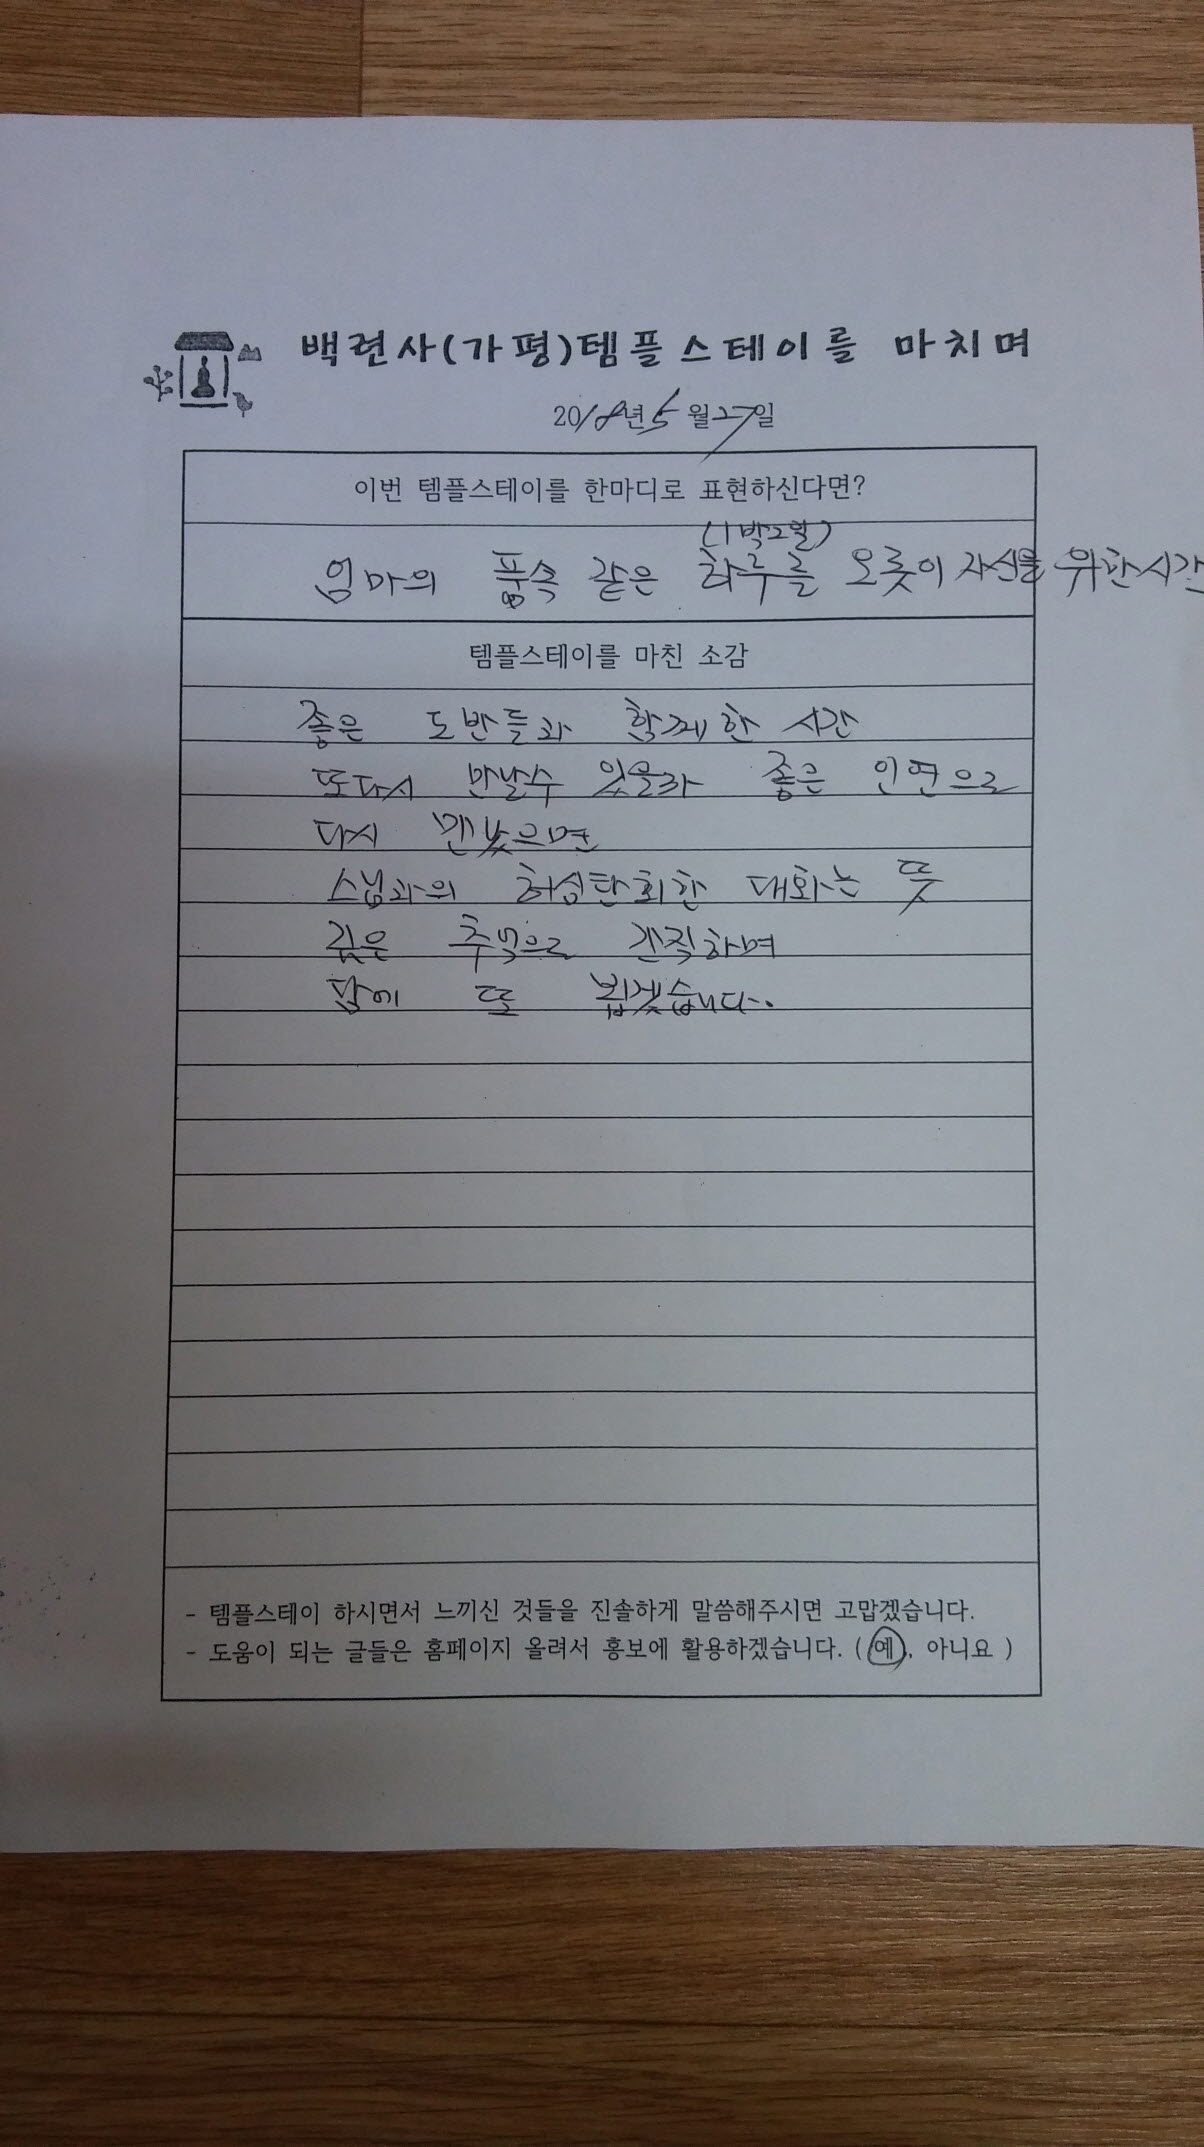 백련사(가평)템플스테이를 마치며
2018년 5월 27일
이번 템플스테이를 한마디로 표현하신다면?
(1박2일)
엄마의 품속 같은 하루를 오롯이 자신을 위한시간
템플스테이를 마친 소감
좋은 도반들과 함께한 시간
또다시 만날수 있을까 좋은 인연으로
다시 만났으면
스님과의 허심탄회한 대화는 뜻
깊은 추억으로 간직하며
담에 또 뵙겠습니다.
- 템플스테이 하시면서 느끼신 것들을 진솔하게 말씀해주시면 고맙겠습니다.
- 도움이 되는 글들은 홈페이지 올려서 홍보에 활용하겠습니다. ( 예, 아니요 )